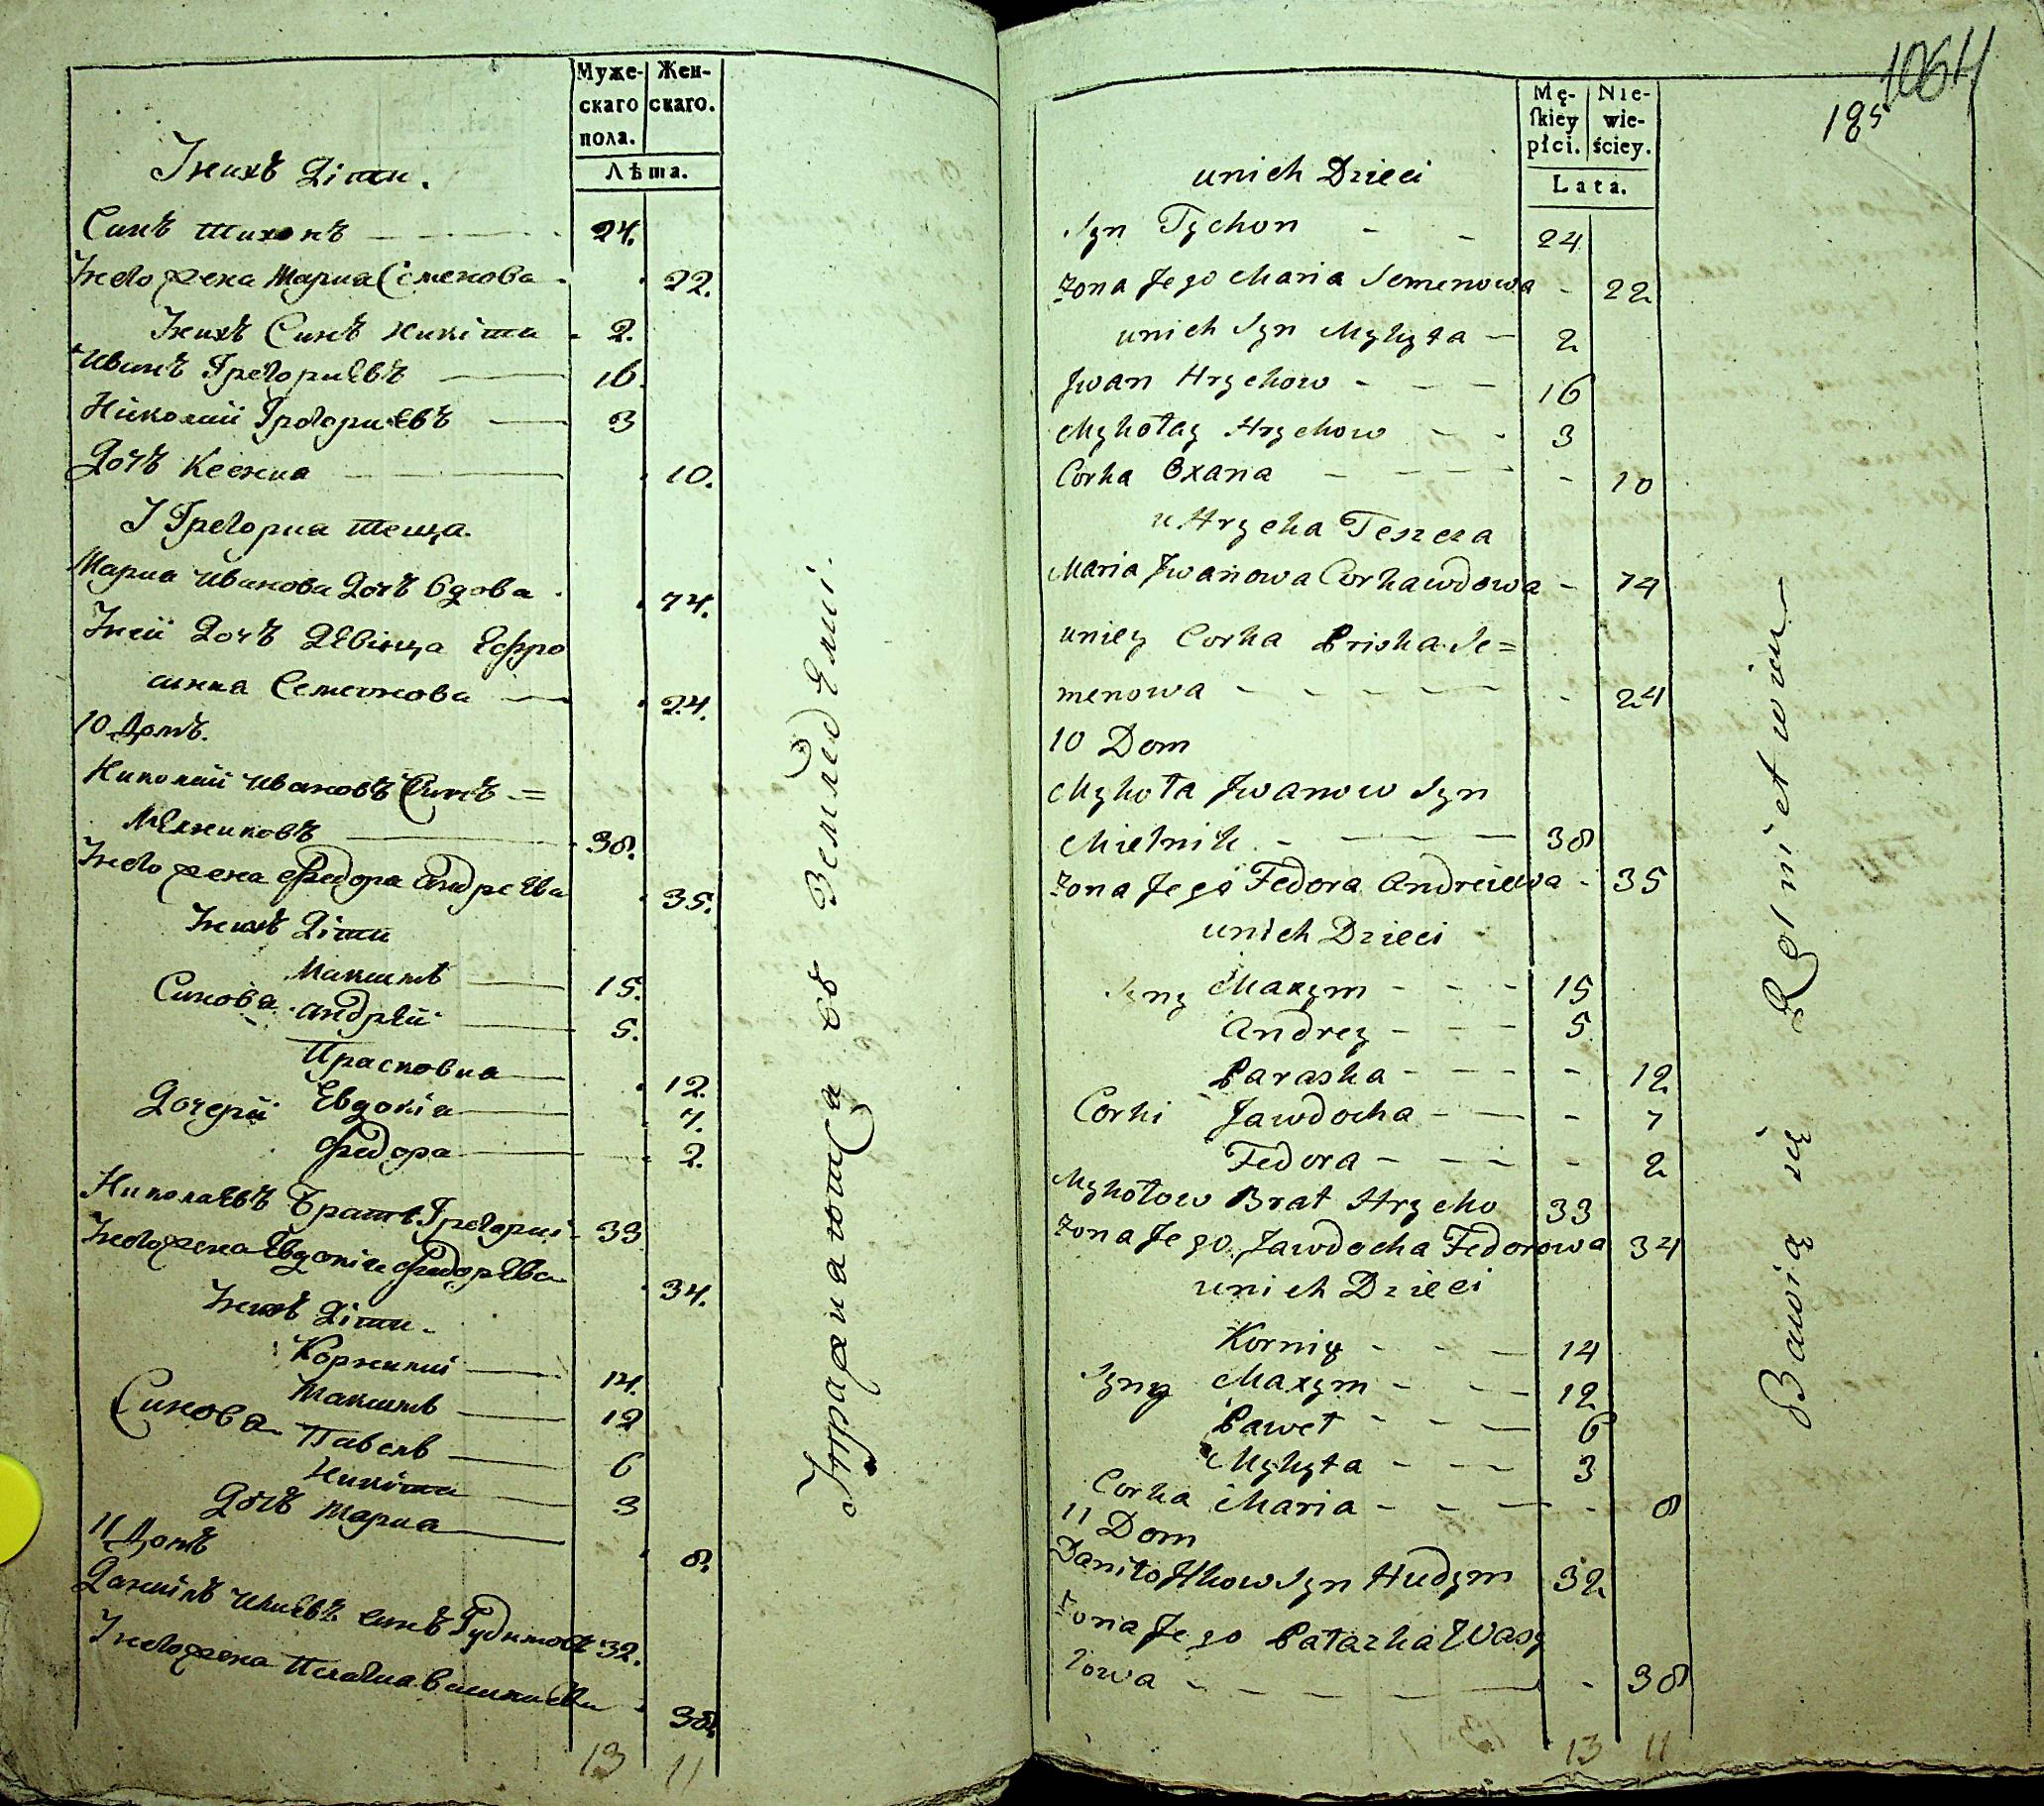 Муже-
скаго
пола.
Жен-
скаго.
Лѣта.
Унихъ Дѣти.
Синъ Тихонъ 24.
Унего жена Мария Семенова 22.
Унихъ Синъ Никита 2.
Иванъ Григориевъ 16.
Николай Григориевъ 3
Дочъ Ксения 10.
У Григория теща.
Мария Иванова Дочъ вдова 74.
Уней Дочъ Девица Ефро
синия Семионова 24.
10 Домъ.
Николай Ивановъ Синъ =
Мелниковъ 38.
Унего жена Федора Андреева 35.
Унихъ Дѣти
Максимъ 15.
Синова
Андрей 5.
Прасковиа 12.
Дочери Евдокиа 7.
Федора 2.
Николаевъ Братъ Григорий 33
Унего жена Евдокиа Федорева 34.
Унихъ Дѣти.
Корнилий 14.
Максимъ 12
Синова
Павелъ 6
Никита 3
Дочъ Мария 8.
11 Домъ
Даниилъ Илиевъ синъ Гудимовъ 32.
Унего жена Пелагиа Василиева 38.
13 11
Упражняются въ Земледелии.
1064
185
Mę-
ſkiey
płci.
Nie-
wie-
ściey.
Lata.
unich Dzieci
Syn Tychon 24
żona Jego Maria Semenowa 22
unich Syn Mykyta 2
Jwan Hrychow 16
Mykołay Hrychow 3
Corka Oxana 10
u Hrycka Teszcza
Maria Jwanowa Corka wdowa 74
uniey Corka Priska Se=
menowa 24
10 Dom
Mykoła Jwanow Syn
Mielnik 38
żona Jego Fedora Andreiewa 35
unich Dzieci
Syny Maxym 15
Andrey 5
Paraska 12
Corki Jawdocha 7
Fedora 2
Mykołow Brat Hrycko 33
żona Jego Jawdocha Fedorowa 34
unich Dzieci
Korniy 14
Syny Maxym 12
Paweł 6
Mykyta 3
Corka Maria 8
11 Dom
Daniło Jlkow Syn Hudym 32
żona Jego Pałazka Wasy
lowa 38
13 11
Bawią się Rolnictwiem